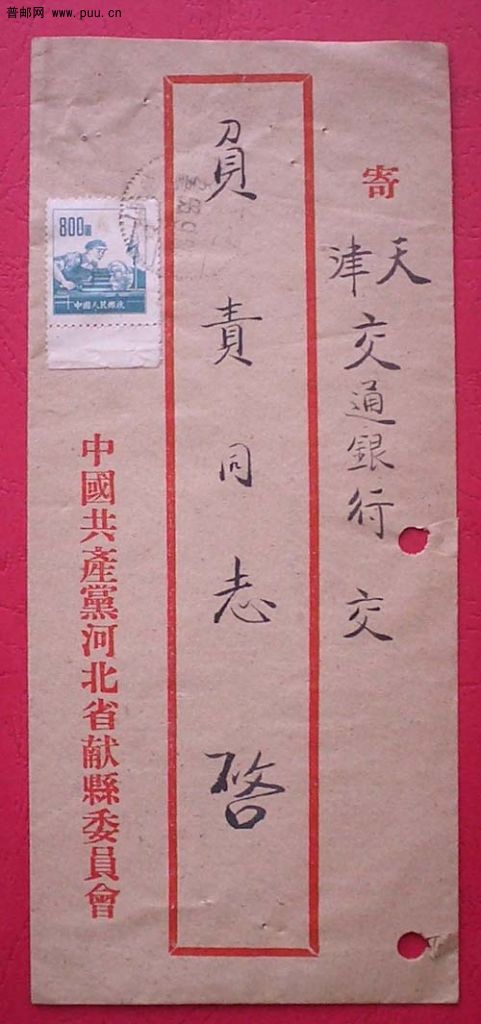 普邮网 www.puu.cn
寄
天津交通银行 交
負責同志 啓
800圓
中國人民郵政
中國共產黨河北省献縣委員會